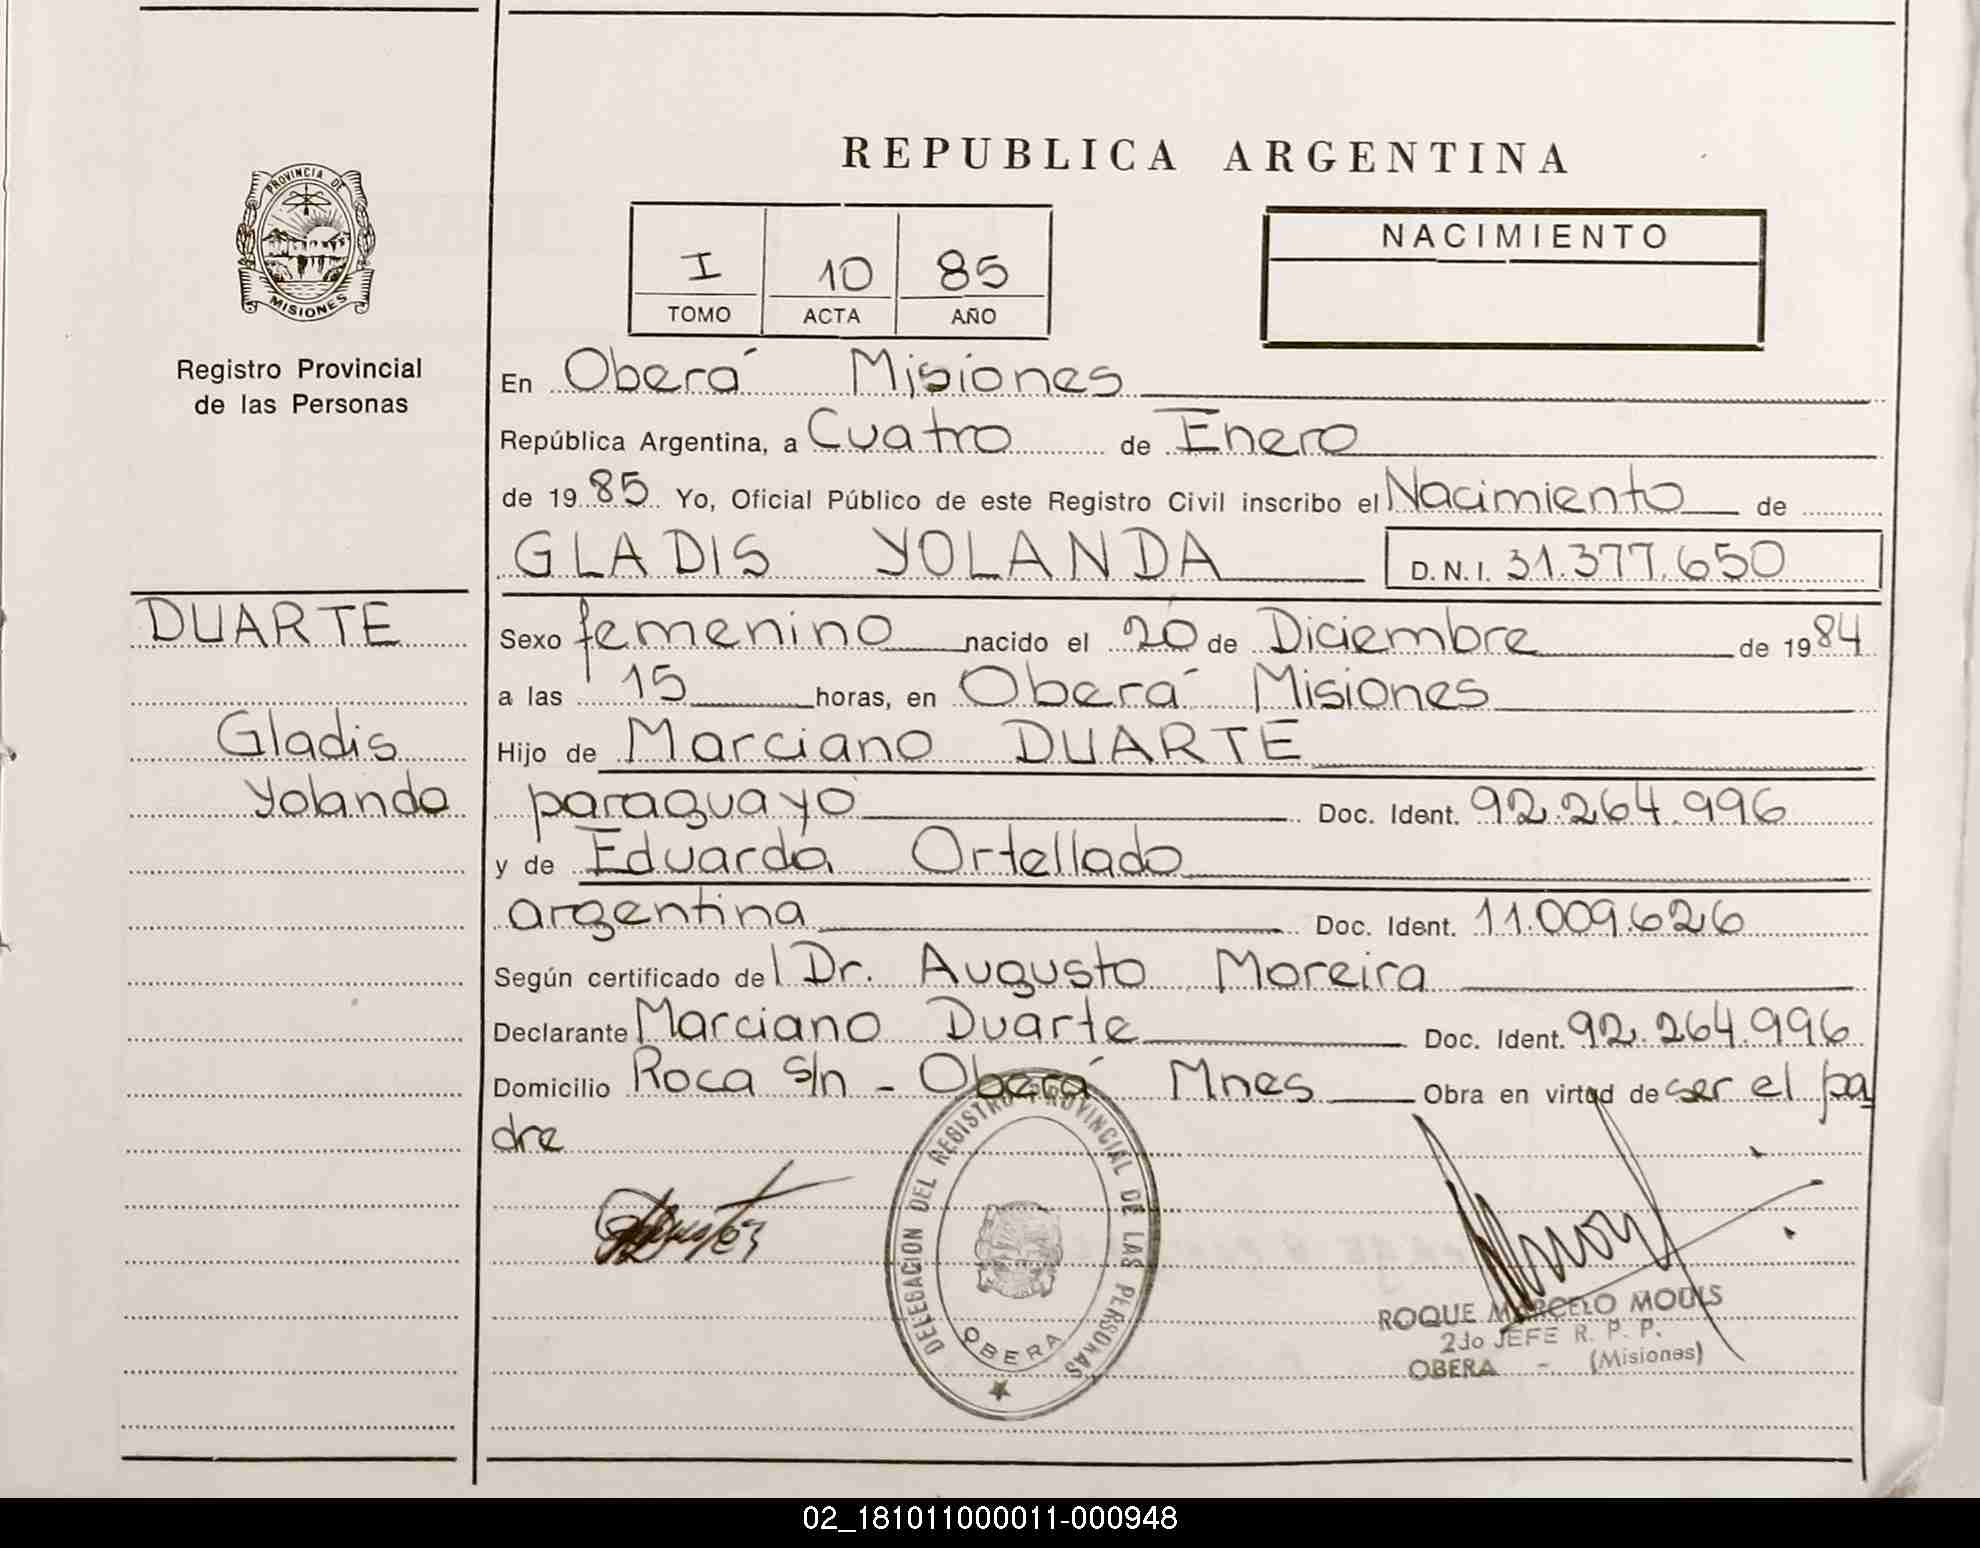 REPUBLICA ARGENTINA
PROVINCIA DE
MISIONES
Registro Provincial
de las Personas
I 10 85
TOMO ACTA AÑO
NACIMIENTO
En Oberá Misiones
República Argentina, a Cuatro de Enero
de 1985 Yo, Oficial Público de este Registro Civil inscribo el Nacimiento de
GLADIS YOLANDA D.N.I. 31.377.650
DUARTE
Gladis
Yolanda
Sexo femenino nacido el 20 de Diciembre de 1984
a las 15 horas, en Oberá Misiones
Hijo de Marciano DUARTE
paraguayo Doc. Ident. 92.264.996
y de Eduarda Ortellado
argentina Doc. Ident. 11.009.626
Según certificado del Dr. Augusto Moreira
Declarante Marciano Duarte Doc. Ident. 92.264.996
Domicilio Roca s/n - Oberá Mnes Obra en virtud de ser el pa
dre
DELEGACION DEL REGISTRO PROVINCIAL DE LAS PERSONAS
OBERA
ROQUE MARCELO
2do JEFE R. P. P.
OBERA - (Misiones)
02_181011000011-000948